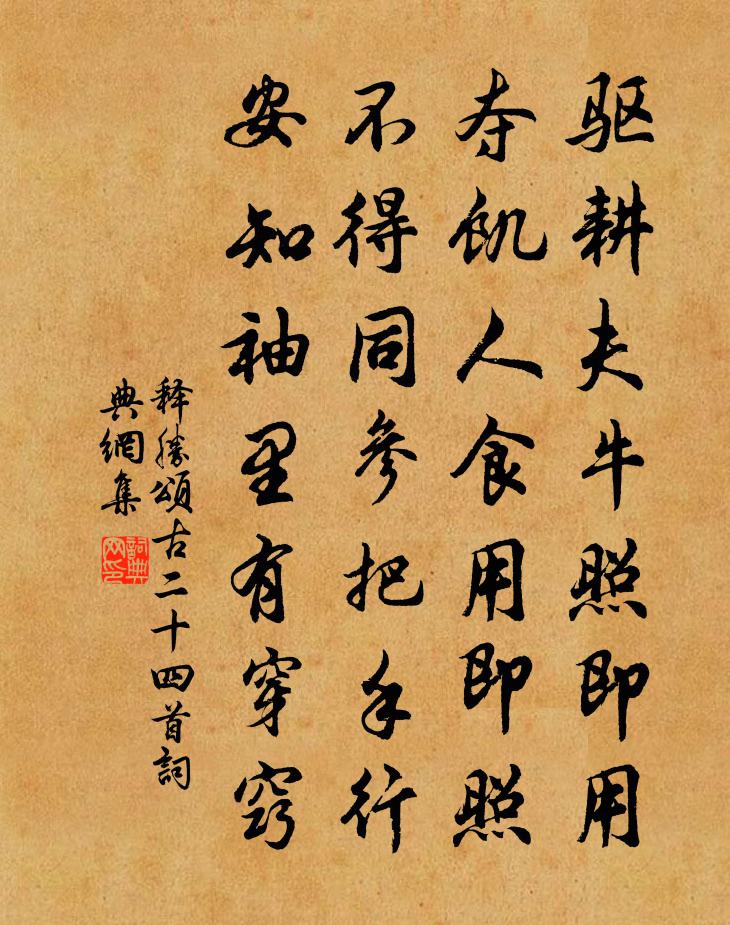 驱耕夫牛照即用
夺飢人食用即照
不得同参把手行
安知袖里有穿窬
释胜颂古二十四首詞
典網集
詞典
网印